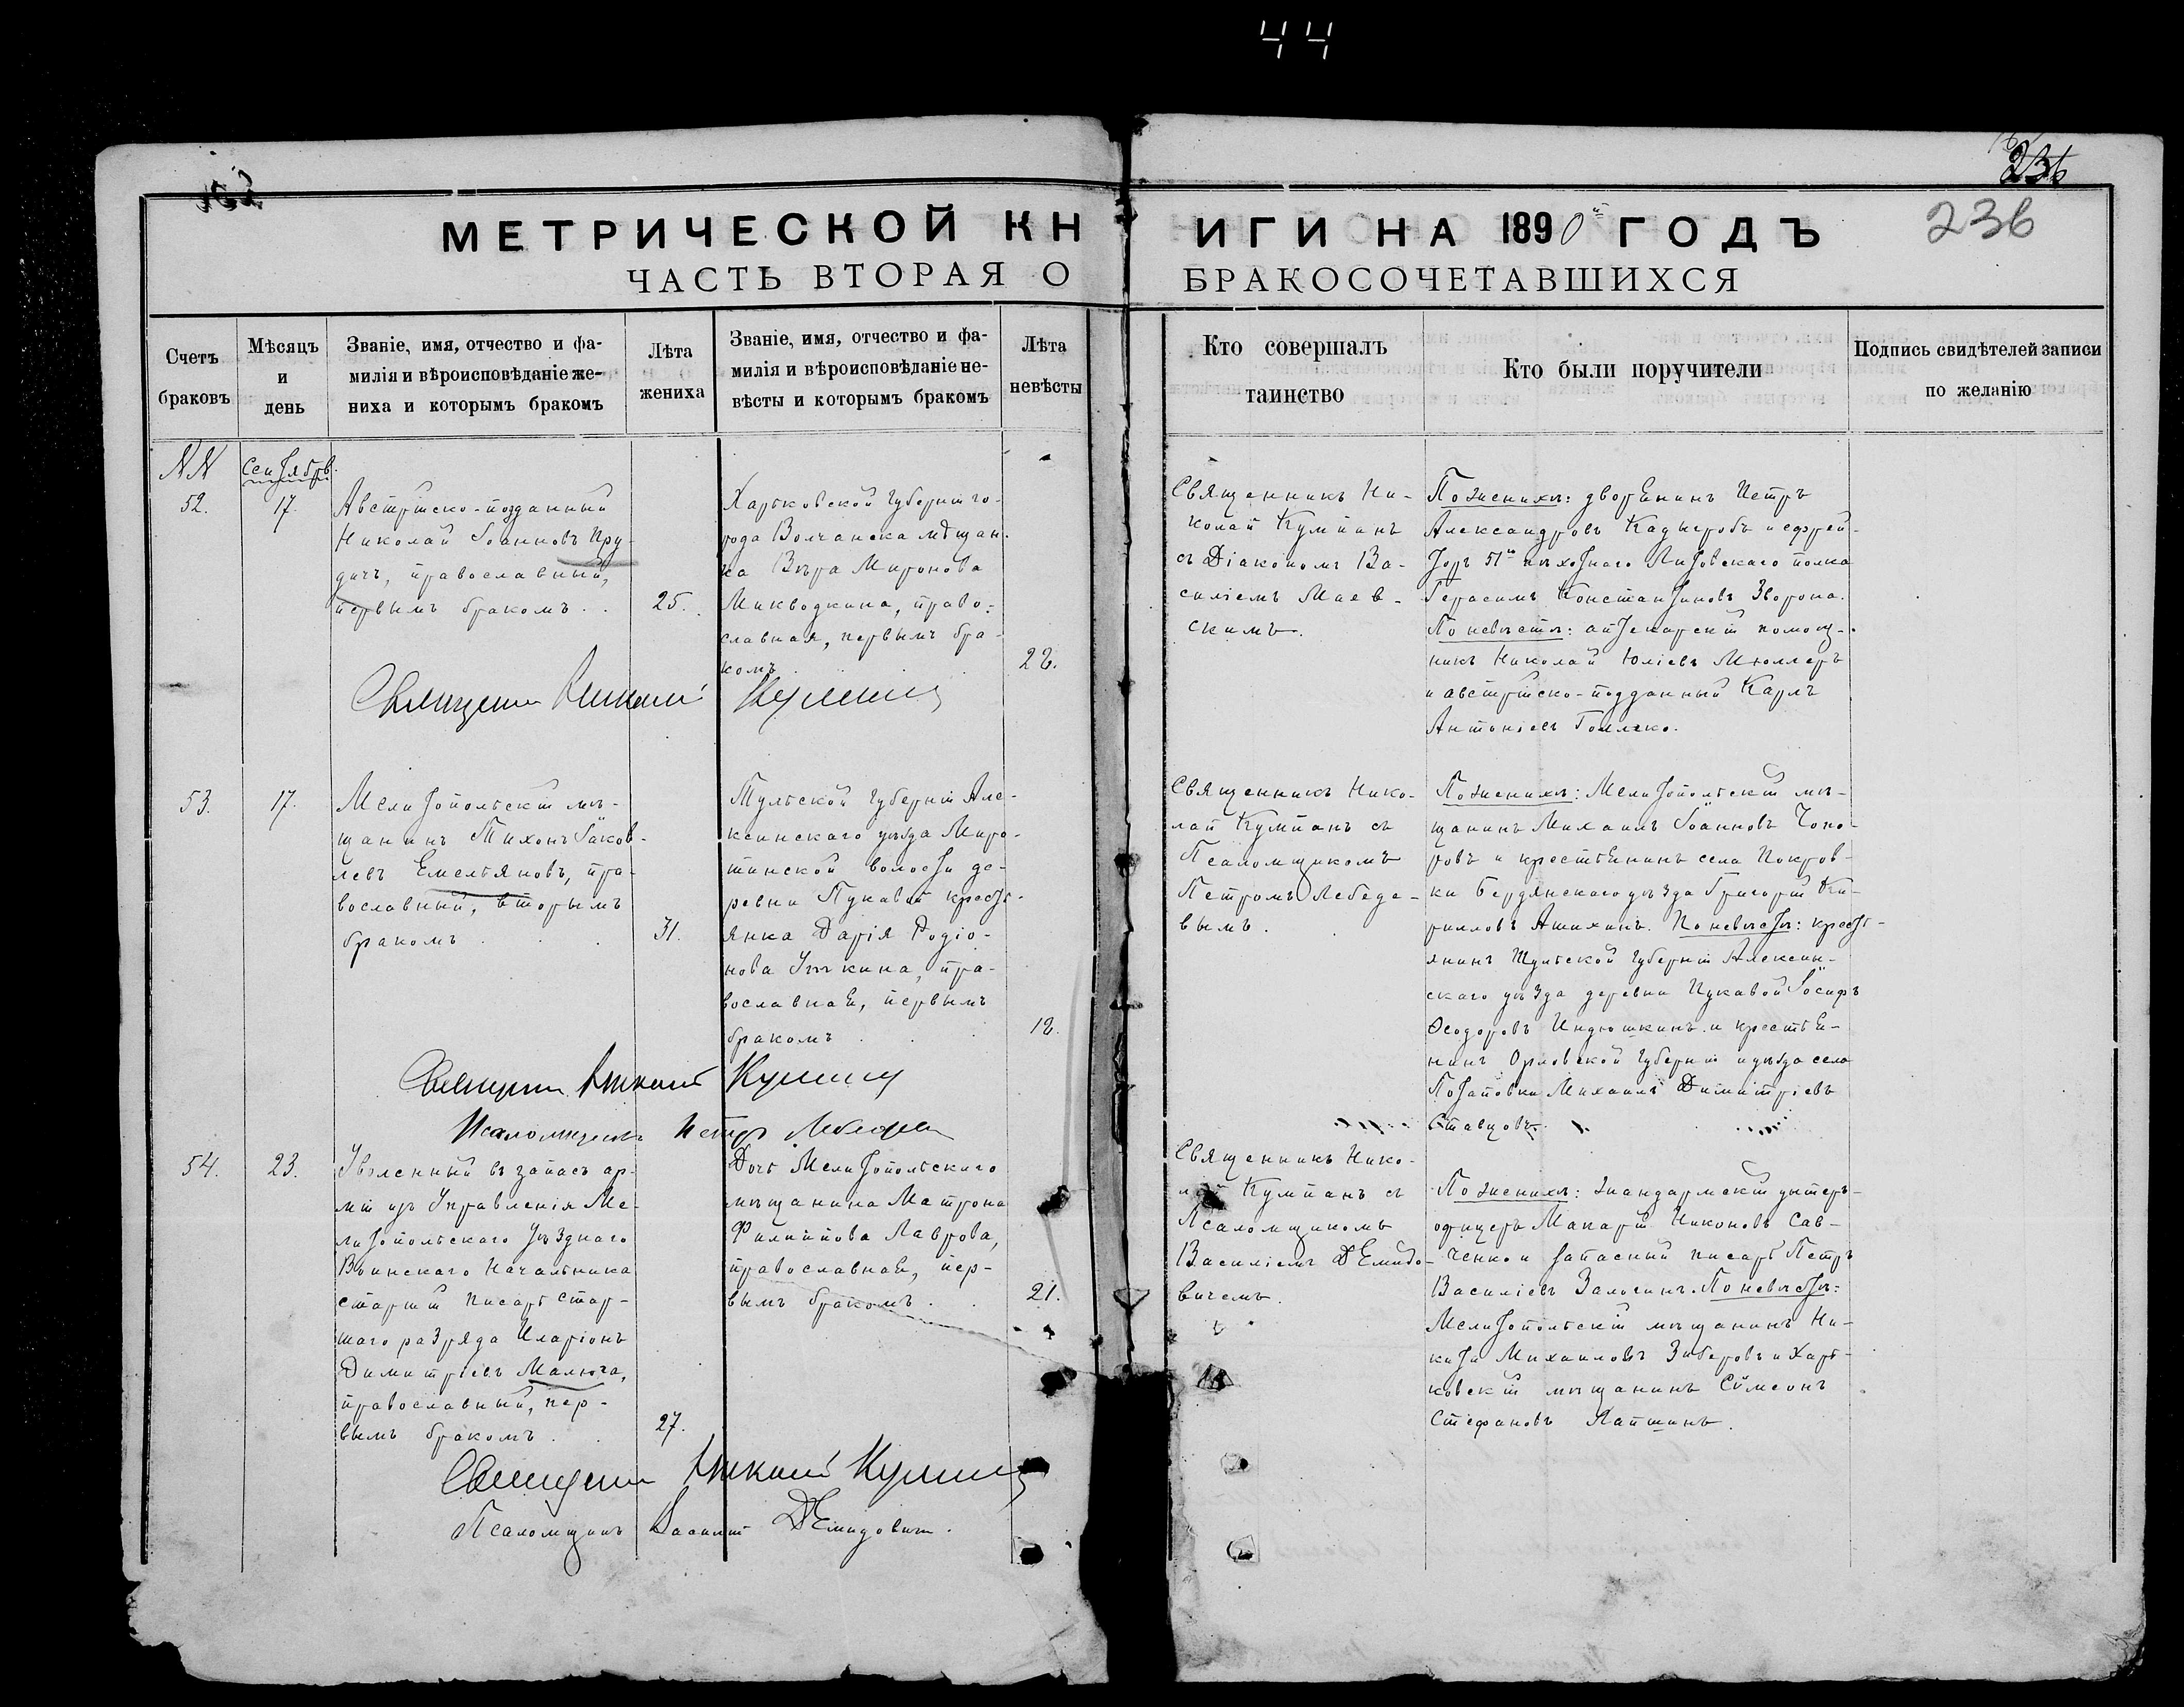 44
236
236
МЕТРИЧЕСКОЙ КНИГИ НА 1890й ГОДЪ
ЧАСТЬ ВТОРАЯ О БРАКОСОЧЕТАВШИХСЯ
Счетъ браковъ
Мѣсяцъ и день
Званіе, имя, отчество и фа-
милія и вѣроисповѣданіе же-
ниха и которымъ бракомъ
Лѣта жениха
Званіе, имя, отчество и фа-
милія и вѣроисповѣданіе не-
вѣсты и которымъ бракомъ
Лѣта невѣсты
Кто совершалъ таинство
Кто были поручители
Подпись свидѣтелей записи
по желанію
NN
Сентябрь.
52.
17.
Австрійско-подданный
Николай Іоанновъ Пру-
дичъ, православный,
первымъ бракомъ . .
25.
Харьковской губерніи го-
рода Волчанска мѣщан-
ка Вѣра Миронова
Микводкина, право-
славная, первымъ бра-
комъ
22.
Священникъ Ни-
колай Кумпанъ
съ Діакономъ Ва-
силіемъ Маев-
скимъ.
По женихѣ: дворянинъ Петръ
Александровъ Кадыгробъ и ефрей-
торъ 51го пѣхотнаго Литовскаго полка
Герасимъ Константиновъ Зворона.
По невѣстѣ: аптекарскій помощ-
никъ Николай Юліевъ Мюллеръ
и австрійско-подданный Карлъ
Антоніевъ
Священникъ Николай Кумпанъ
53.
17.
Мелитопольскій мѣ-
щанинъ Тихонъ Іаков-
левъ Емельяновъ, пра-
вославный, вторымъ
бракомъ . . .
31.
Тульской губерніи Але-
ксинскаго уѣзда Миро-
тинской волости де-
ревни Пукавой кресть-
янка Дарія Родіо-
нова Уткина, пра-
вославная, первымъ
бракомъ . . .
18.
Священникъ Нико-
лай Кумпанъ съ
Псаломщикомъ
Петромъ Лебеде-
вымъ.
По женихѣ: Мелитопольскій мѣ-
щанинъ Михаилъ Іоанновъ
и крестьянинъ села Покров-
ки Бердянскаго уѣзда Григорій Ки-
рилловъ Анихинъ. По невѣстѣ: кресть-
янинъ Тульской губерніи Алексин-
скаго уѣзда деревни Пукавой Іосифъ
Ѳеодоровъ Индюшкинъ и крестья-
нинъ Орловской губерніи и уѣзда села
Потаповки Михаилъ Димитріевъ
Ставцовъ.
Священникъ Николай Кумпанъ
Псаломщикъ Петръ Лебедевъ
54.
23.
Уволенный въ запасъ ар-
міи изъ Управленія Ме-
литопольскаго Уѣзднаго
Воинскаго Начальника
старшій писарь стар-
шаго разряда Иларіонъ
Димитріевъ Малюга,
православный, пер-
вымъ бракомъ . .
27.
Дочь Мелитопольскаго
мѣщанина Матрона
Филиппова Лаврова,
православная, пер-
вымъ бракомъ . .
21.
Священникъ Нико-
лай Кумпанъ съ
Псаломщикомъ
Василіемъ Демидо-
вичемъ.
По женихѣ: жандармскій унтеръ-
офицеръ Макарій Никоновъ Сав-
ченко и запасный писарь Петръ
Василіевъ Залогинъ. По невѣстѣ:
Мелитопольскій мѣщанинъ Ни-
кита Михаиловъ Зиберовъ и Харь-
ковскій мѣщанинъ Сѵмеонъ
Стефановъ Лапшинъ.
Священникъ Николай Кумпанъ
Псаломщикъ Василій Демидовичъ.